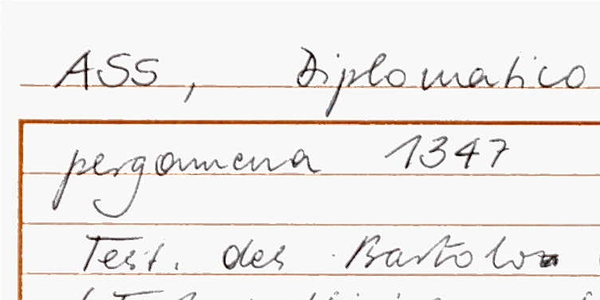 ASS, Diplomatico
pergamena 1347
Test. des